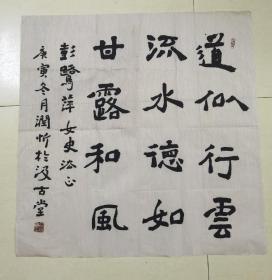 道似行雲
流水德如
甘露和風
彭鷺萍女史法正
庚寅冬月潤忻於汲古堂